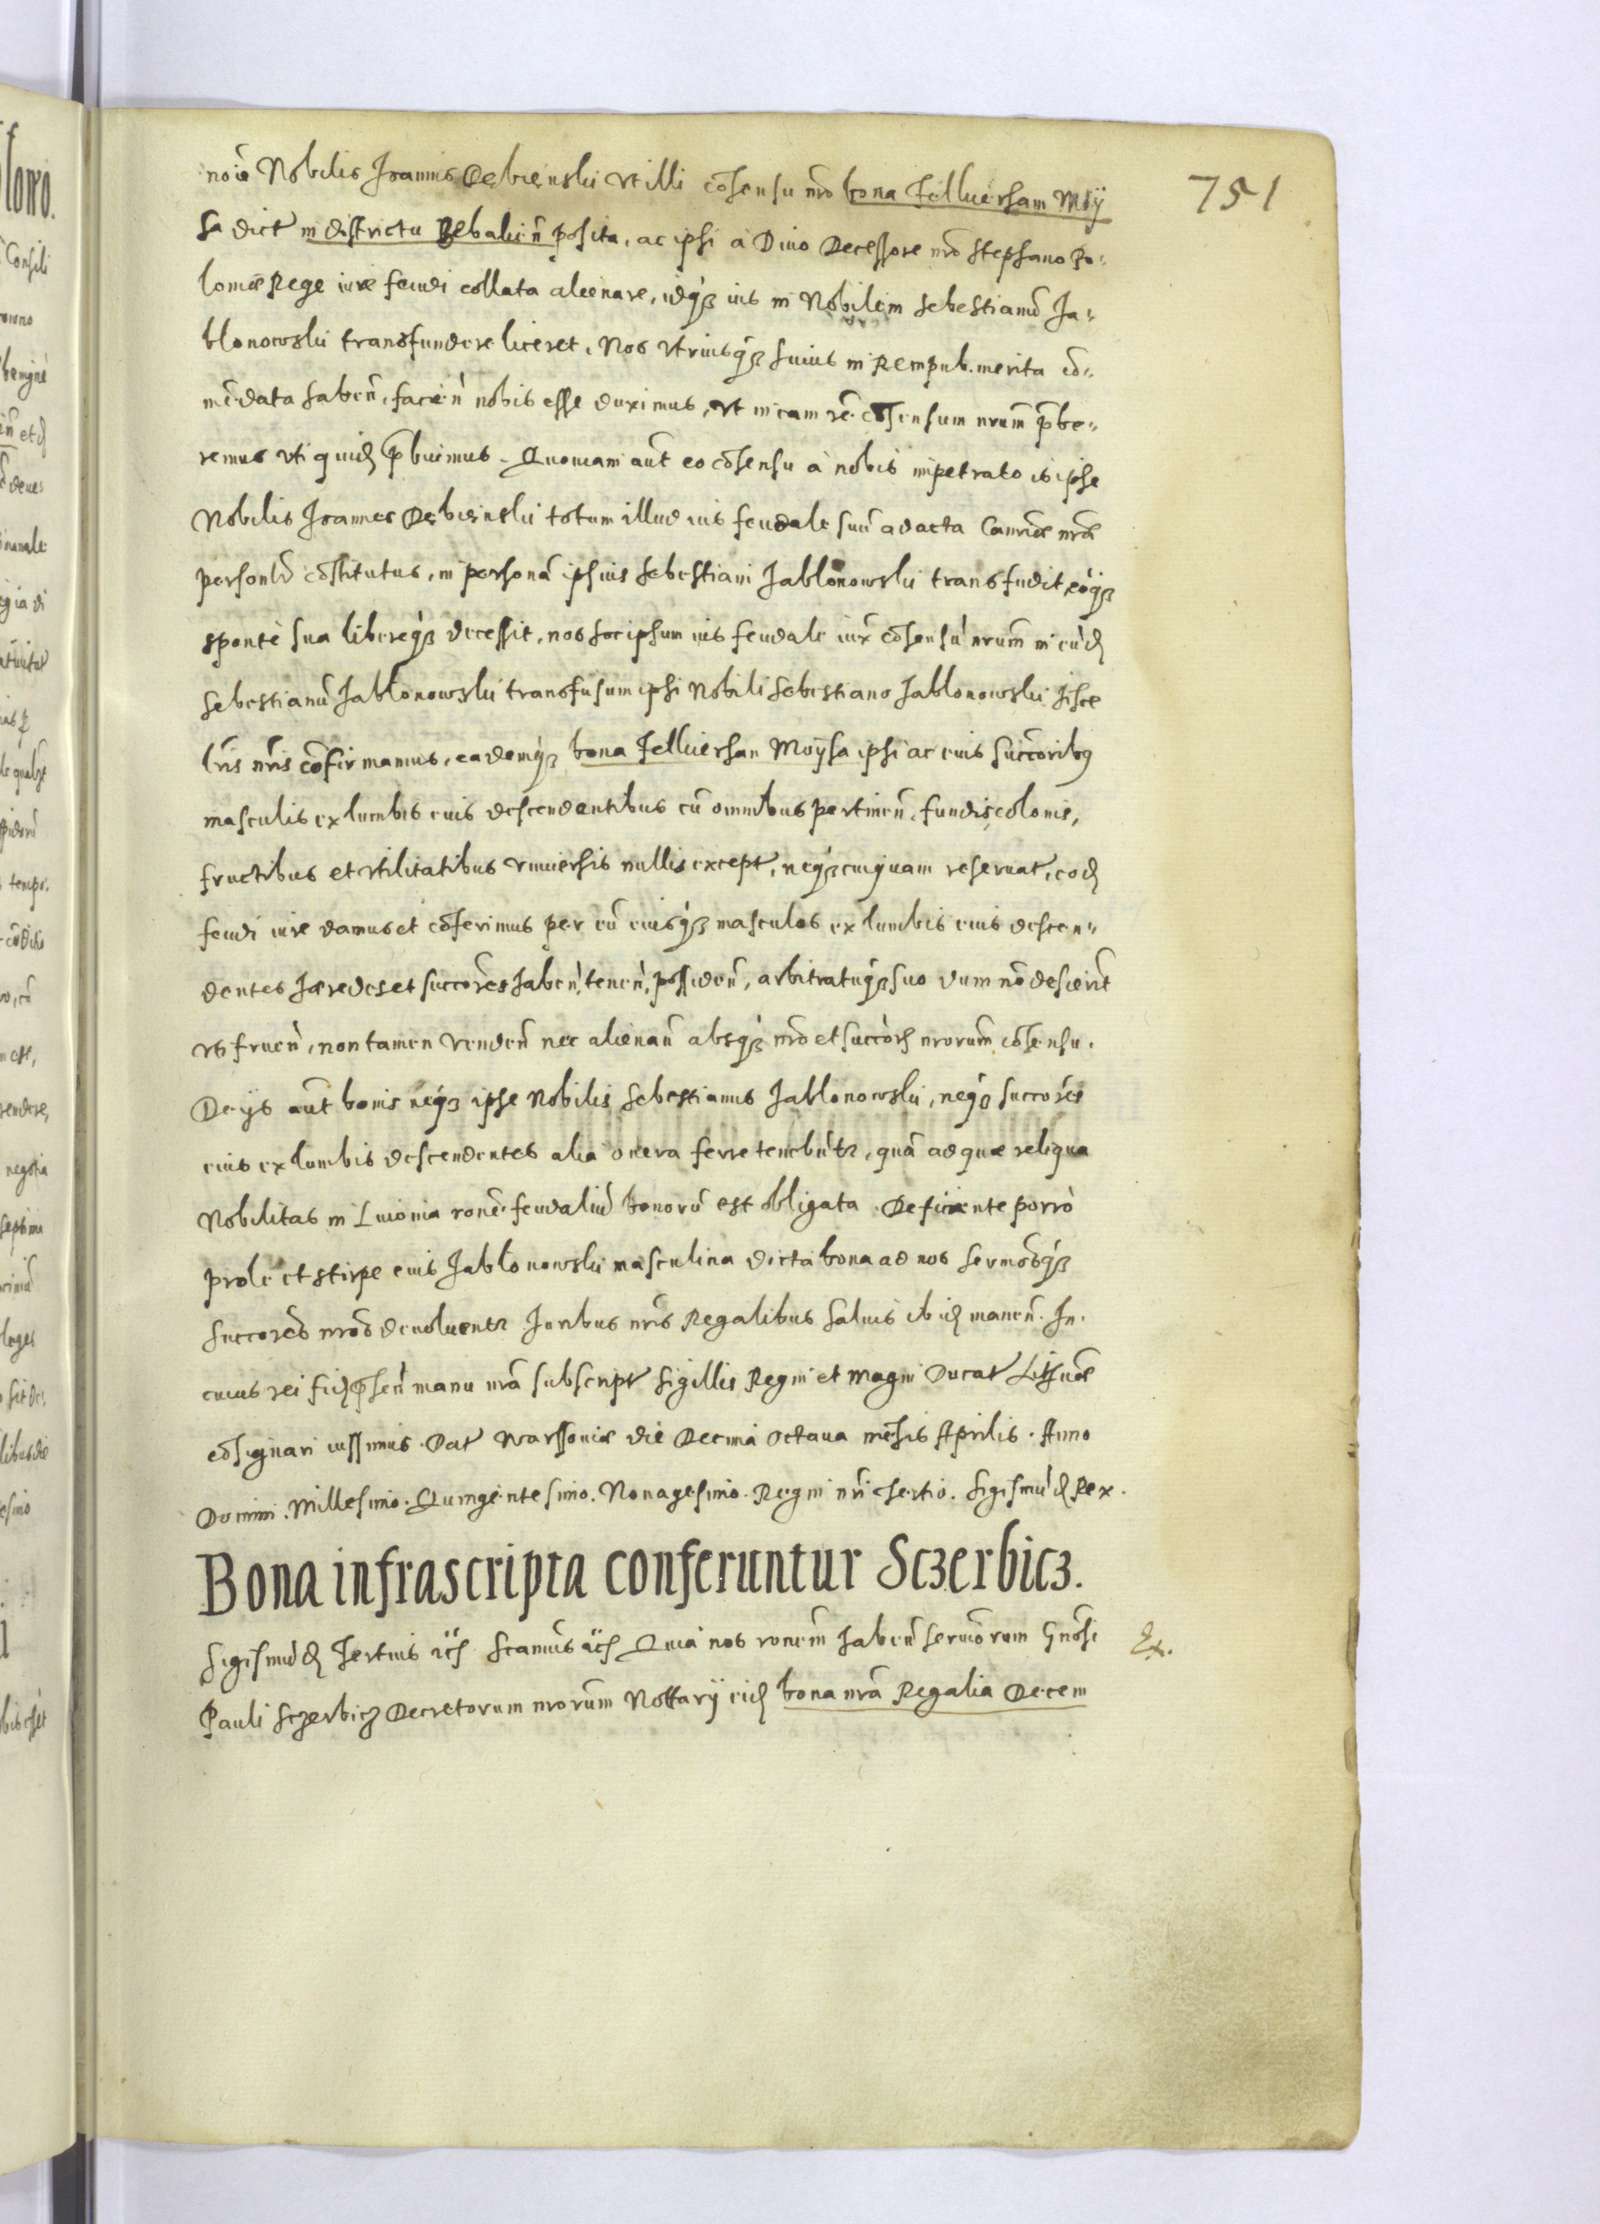 751
noiē Nobilis Joannis Dębienski vt illi cōsensu nrō bona Felluersham Moÿ
sa dict in districtu Zebalien̄ posita, ac ipsi à Diuo Decessore nrō Stephano Po-
loniæ Rege iure feudi collata alienare, idqꝫ ius in Nobilem Sebestianū Ja-
blonowski transfundere liceret. Nos vtriusqꝫ huius in Rempub. merita cō-
mēdata haben̄, facien̄ nobis esse duximus, vt in eam rē cōsensum nrum p̄be-
remus vti quidē p̄buimus. Quoniam aut̄ eo cōsensu à nobis impetrato is ipse
Nobilis Joannes Dębienski totum illud ius feudale suū ad acta Canriæ nræ
personlr̄ cōstitutus, in personā ipsius Sebestiani Jablonowski transfudit, eoqꝫ
sponte sua libereqꝫ decessit, nos hoc ipsum ius feudale iux̄ cōsensū nrum in eūd̄
Sebestianū Jablonowski transfusum ipsi Nobili Sebestiano Jablonowski hisce
lris nris cōfirmamus, eademqꝫ bona Felluersham Moÿsa ipsi ac eius succoribꝫ
masculis ex lumbis eius descendentibus cū omnibus pertinen̄, fundis, colonis,
fructibus et vtilitatibus vniuersis nullis except, neqꝫ cuiquam reseruat, eod̄
feudi iure damus et cōferimus per eū eiusqꝫ masculos ex lumbis eius descen-
dentes hæredes et succores haben̄, tenen̄, possiden̄, arbitratuqꝫ suo dum nō desierit
vti fruen̄, non tamen venden̄ nec alienan̄ absqꝫ nrō et succor̄ nrorum cōsensu.
De ijs aut̄ bonis neqꝫ ipse Nobilis Sebestianus Jablonowski, neqꝫ succores
eius ex lumbis descendentes alia onera ferre tenebūtr, quā ad quæ reliqua
Nobilitas in Liuonia ronē feudaliū bonorū est obligata. Deficiente porrò
prole et stirpe eius Jablonowski masculina dicta bona ad nos Sermosqꝫ
succores nros deuoluentr Juribus nris Regalibus saluis ibid̄ manen̄. In
cuius rei fid̄ p̄sen̄ manu nrā subscript sigillis Regni et Magni Ducat Lithuæ
cōsignari iussimus. Dat Warssouiæ die Decima Octaua mēsis Aprilis. Anno
Domini. Millesimo. Quingentesimo. Nonagesimo. Regni nri tertio. Sigismūd̄ Rex.
Bona infrascripta conferuntur Sczerbicz.
Sigismūd̄ Tertius etc̄ Scamus etc̄ Quia nos ronem haben̄ seruiorum Gnosi
Pauli Sczerbicz Decretorum nrorum Nottarij eid̄ bona nrā Regalia Decem
Ex.